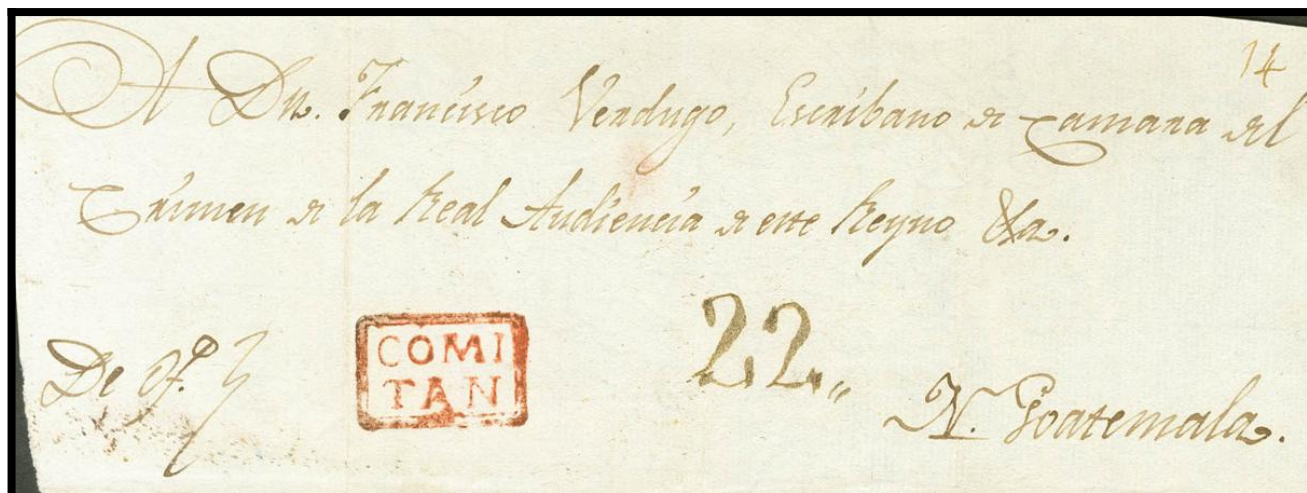 14
A Dn. Francisco Verdugo, Escribano de Camara del
Crimen de la Real Audiencia de este Reyno &a.
De Of.º
COMI
TAN
22„
N. Goatemala.